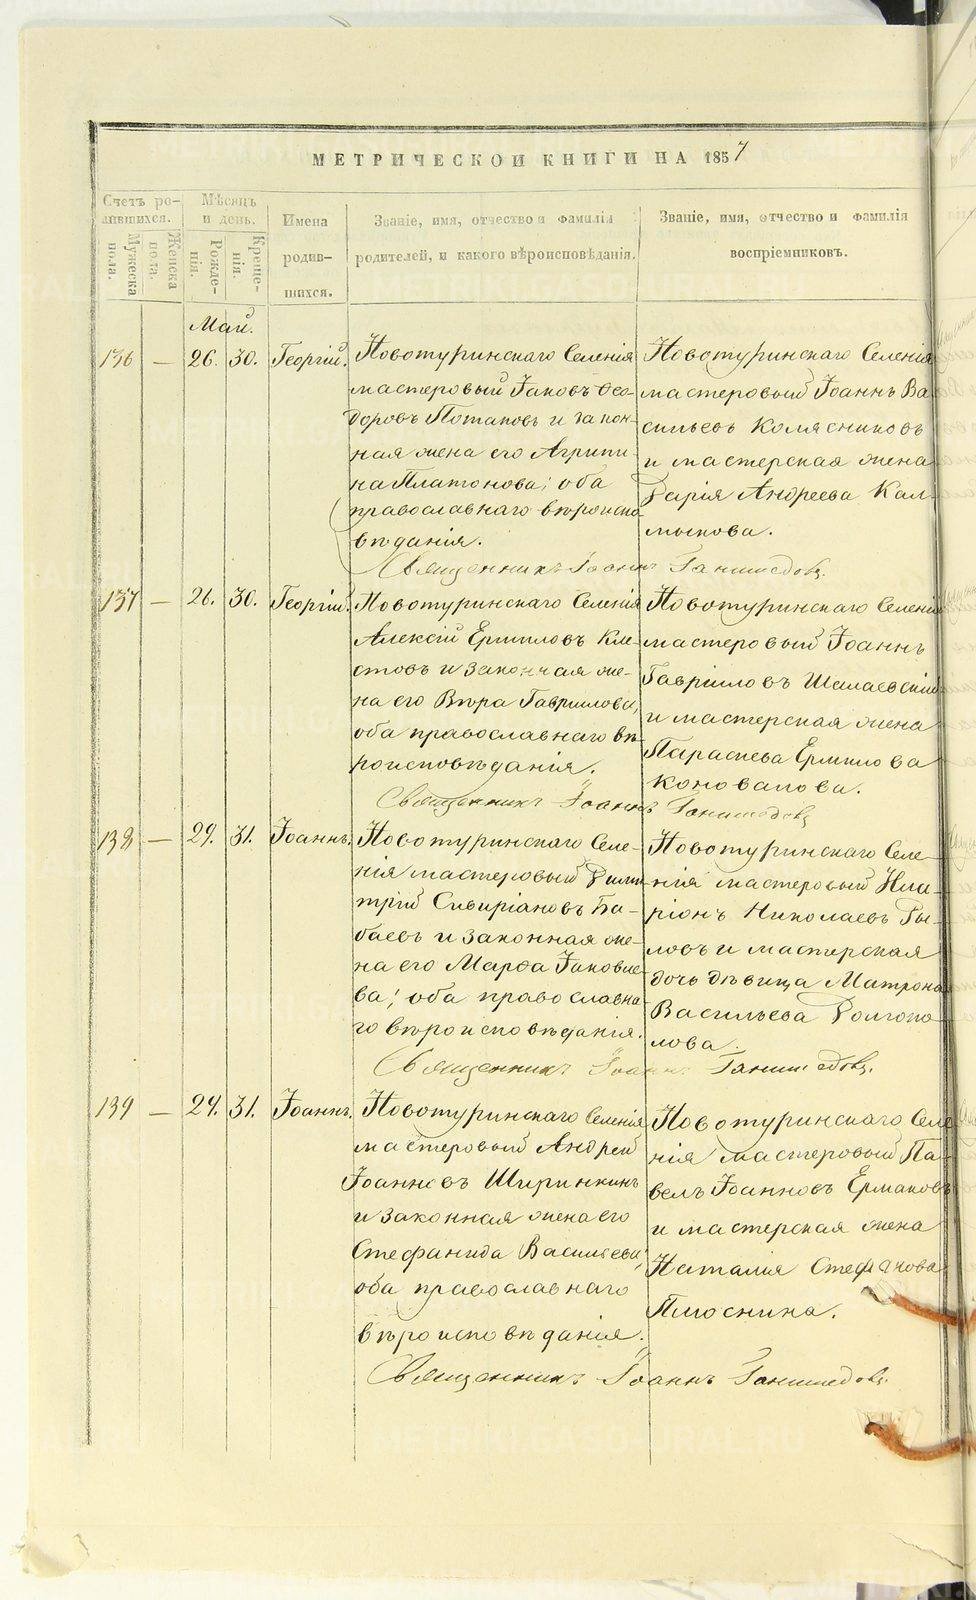 МЕТРИЧЕСКОЙ КНИГИ НА 1857
Счетъ ро-
дившихся.
Мужеска
пола.
Женска
пола.
Мѣсяцъ
и день.
Рожде-
нія.
Креще-
нія.
Имена
родив-
шихся.
Званіе, имя, отчество и фамилія
родителей, и какого вѣроисповѣданія.
Званіе, имя, отчество и фамилія
воспріемниковъ.
Май.
136 — 26. 30. Георгій.
Новотуринскаго Селенія
мастеровый Іаковъ Ѳео-
доровъ Потаповъ и закон-
ная жена его Агрипи-
на Платонова; оба
православнаго вѣроиспо
вѣданія.
Новотуринскаго Селенія
мастеровый Іоаннъ Ва
сильевъ Колясниковъ
и мастерская жена
Дарія Андреева Кал-
мыкова.
Священникъ Іоаннъ
137 — 26. 30. Георгій.
Новотуринскаго Селенія
Алексій Ермиловъ Кле-
стовъ и законная же-
на его Вѣра Гавриилова,
оба православнаго вѣ-
роисповѣданія.
Новотуринскаго Селенія
мастеровый Іоаннъ
Гавріиловъ Шалаевскій
и мастерская жена
Параскева Ермилова
Коновалова.
Священникъ Іоаннъ
138 — 29. 31. Іоаннъ.
Новотуринскаго Селе-
нія мастеровый Дими
трій Сивиріановъ Ба-
баевъ и законная же-
на его Марѳа Іаковле-
ва; оба православна-
го вѣроисповѣданія.
Новотуринскаго Селе-
нія мастеровый Ила-
ріонъ Николаевъ Ры-
ловъ и мастерская
дочь дѣвица Матрона
Васильева Долгопо-
лова.
Священникъ Іоаннъ
139 — 29. 31. Іоаннъ.
Новотуринскаго Селенія
мастеровый Андрей
Іоанновъ Ширинкинъ
и законная жена его
Стефанида Васильева;
оба православнаго
вѣроисповѣданія.
Новотуринскаго Селе
нія мастеровый Па-
велъ Іоанновъ Ермаковъ
и мастерская жена
Наталія Стефанова
Плюснина.
Священникъ Іоаннъ
METRIKI.GASO-URAL.RU